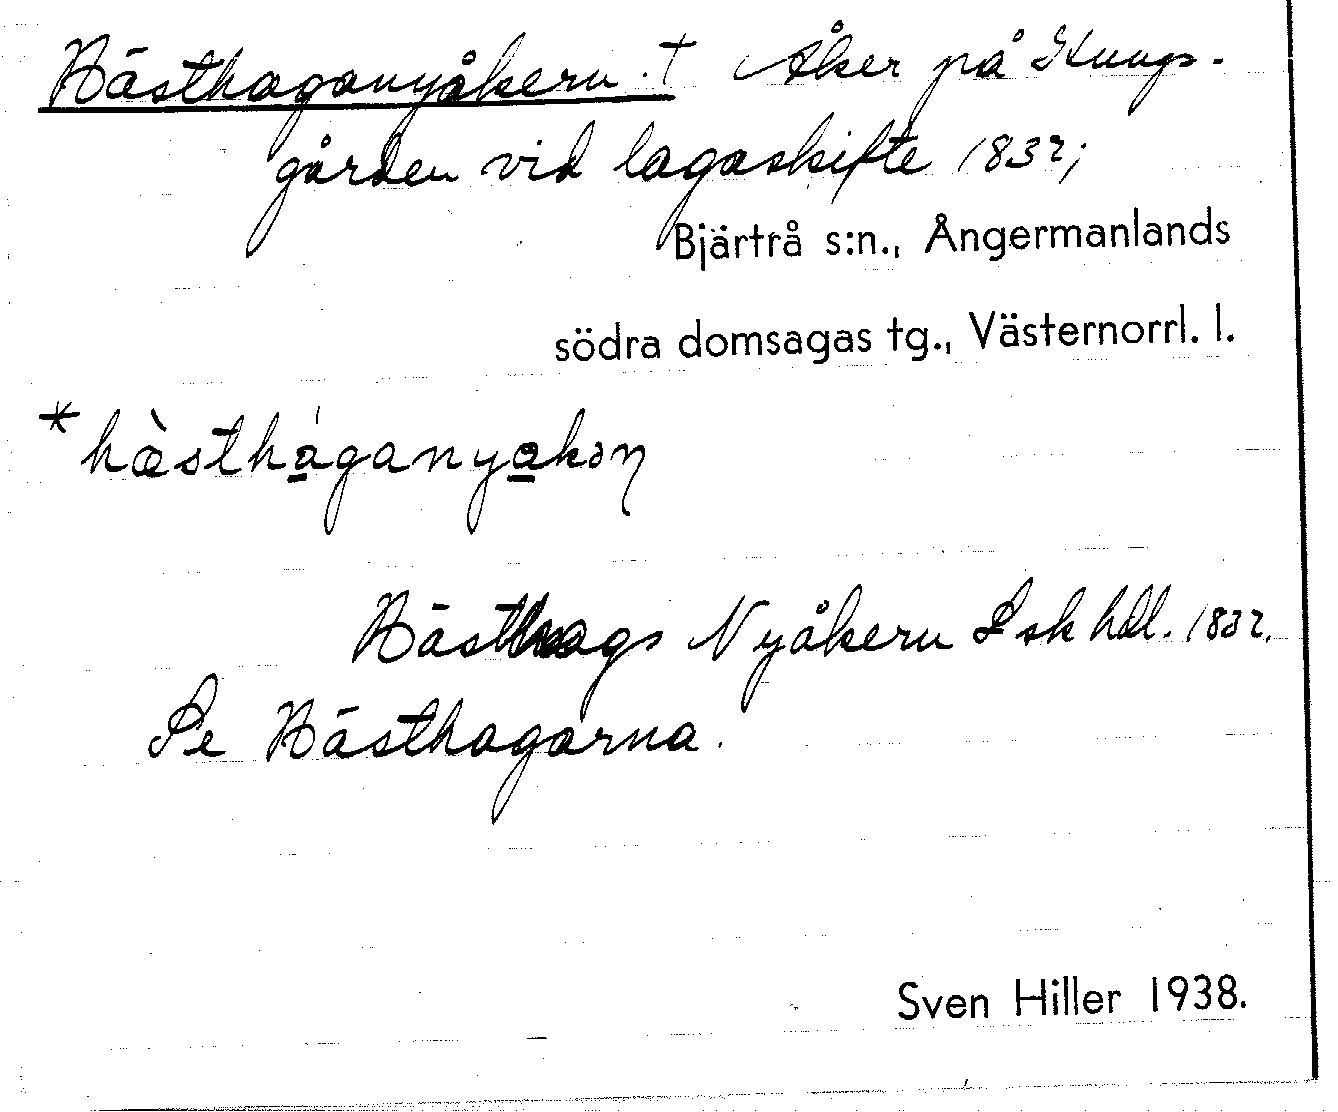 Hästhaganyåkern. † Åker på Kungs-
gården vid lagaskifte 1832;
Bjärtrå s:n., Ångermanlands
södra domsagas tg., Västernorrl. l.
Hästhags Nyåkern L sk hdl. 1832.
Se Hästhagarna.
Sven Hiller 1938.